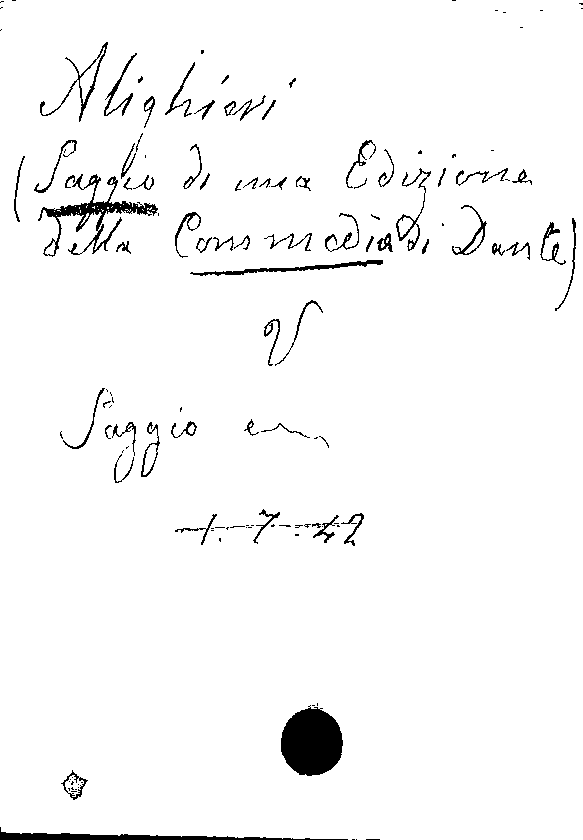 Alighieri
(Saggio di una Edizione
della Commedia di Dante)
V
Saggio e
1.7.42